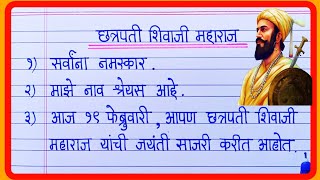 छत्रपती शिवाजी महाराज
१) सर्वांना नमस्कार.
२) माझे नाव श्रेयस आहे.
३) आज १९ फेब्रुवारी, आपण छत्रपती शिवाजी
महाराज यांची जयंती साजरी करीत आहोत.